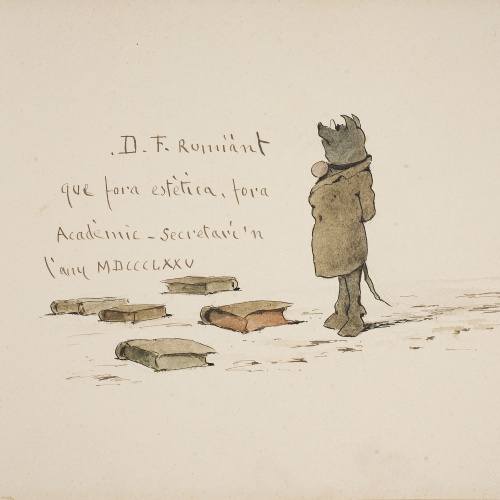 .D. F. Rumiänt
que fora estètica, fora
Acadèmic - Secretari'n
l'any MDCCCLXXV